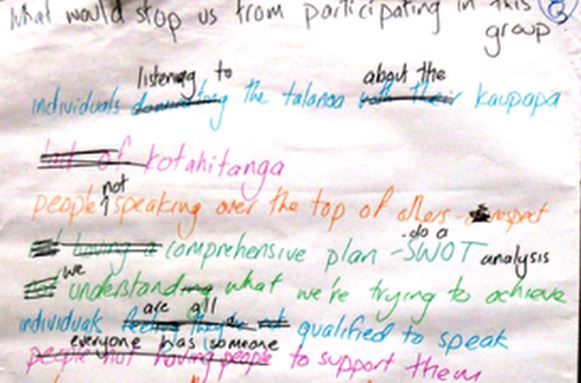 What would stop us from participating in this group
individuals listening to the talanoa about the kaupapa
kotahitanga
people not speaking over the top of others - respect
comprehensive plan - do a SWOT analysis
we understand what we're trying to achieve
individuals are all qualified to speak
everyone has someone to support them